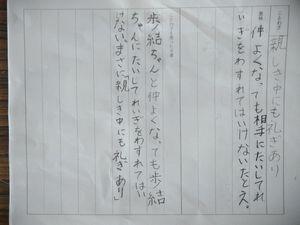 ことわざ
親しき中にも礼ぎあり
意味
仲よくなっても相手にたいしてれ
いぎをわすれてはいけないたとえ。
歩結ちゃんと仲よくなっても歩結
ちゃんにたいしてれいぎをわすれてはい
けない。まさに「親しき中にも礼ぎあり」